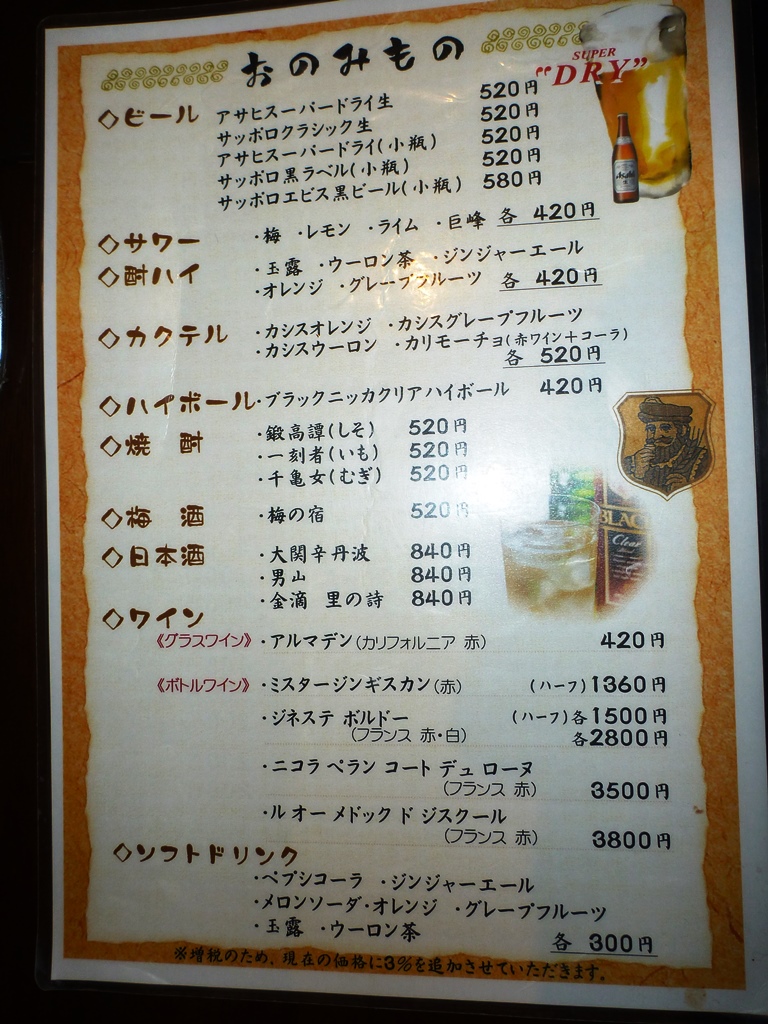 おのみもの
SUPER
"DRY"
◇ビール
アサヒスーパードライ生 520円
サッポロクラシック生 520円
アサヒスーパードライ(小瓶) 520円
サッポロ黒ラベル(小瓶) 520円
サッポロエビス黒ビール(小瓶) 580円
Asahi
◇サワー ・梅 ・レモン ・ライム ・巨峰 各 420円
◇酎ハイ ・玉露 ・ウーロン茶 ・ジンジャーエール
・オレンジ ・グレープフルーツ 各 420円
◇カクテル ・カシスオレンジ ・カシスグレープフルーツ
・カシスウーロン ・カリモーチョ(赤ワイン+コーラ)
各 520円
◇ハイボール・ブラックニッカクリアハイボール 420円
◇焼 酎 ・鍛高譚(しそ) 520円
・一刻者(いも) 520円
・千亀女(むぎ) 520円
◇梅 酒 ・梅の宿 520円
BLAC
Clear
◇日本酒 ・大関辛丹波 840円
・男山 840円
・金滴 里の詩 840円
◇ワイン
《グラスワイン》・アルマデン(カリフォルニア 赤) 420円
《ボトルワイン》・ミスタージンギスカン(赤) (ハーフ)1360円
・ジネステ ボルドー (ハーフ)各1500円
(フランス 赤・白) 各2800円
・ニコラ ペラン コート デュ ローヌ
(フランス 赤) 3500円
・ル オー メドック ド ジスクール
(フランス 赤) 3800円
◇ソフトドリンク
・ペプシコーラ ・ジンジャーエール
・メロンソーダ・オレンジ ・グレープフルーツ
・玉露 ・ウーロン茶
各 300円
※増税のため、現在の価格に3%を追加させていただきます。